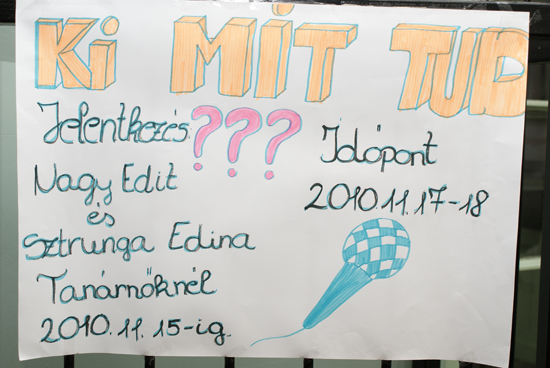 Ki MiT TUD
Jelentkezés ???
Nagy Edit
és
Sztrunga Edina
Tanárnőknél
2010.11.15-ig.
Időpont
2010.11.17-18